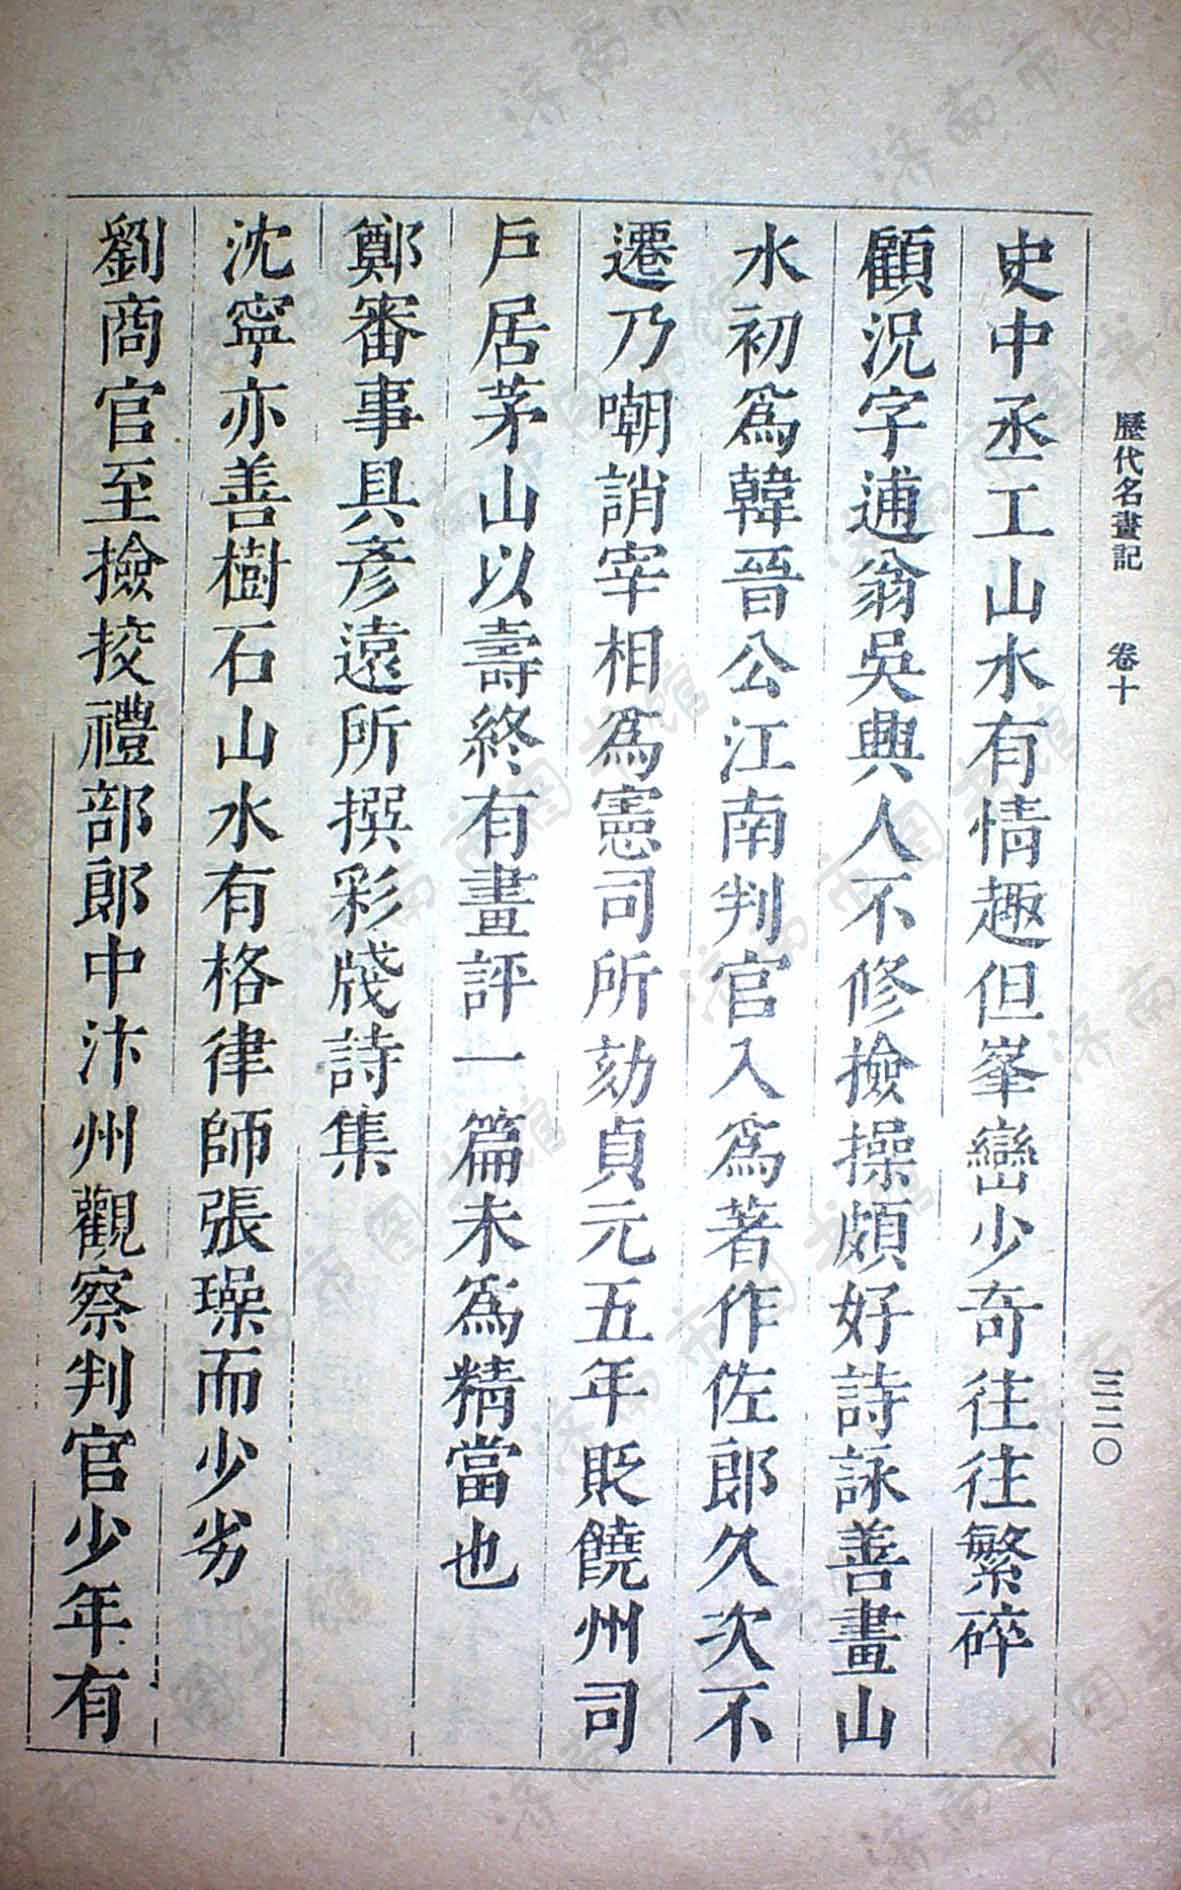 歷代名畫記　卷十　三二〇
史中丞工山水有情趣但峯巒少奇往往繁碎
顧況字逋翁吳興人不修撿操頗好詩詠善畫山
水初爲韓晉公江南判官入爲著作佐郎久次不
遷乃嘲誚宰相爲憲司所劾貞元五年貶饒州司
戶居茅山以壽終有畫評一篇未爲精當也
鄭審事具彥遠所撰彩牋詩集
沈寧亦善樹石山水有格律師張璪而少劣
劉商官至撿挍禮部郎中汴州觀察判官少年有
济南市图书馆